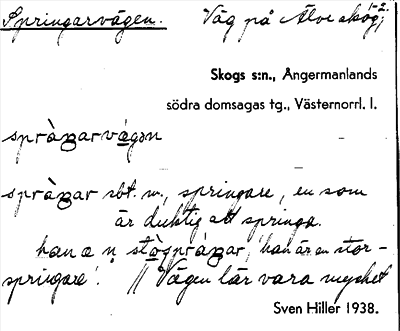 Springarvägen. Väg på Älve skog; 1-2.
Skogs s:n., Ångermanlands
södra domsagas tg., Västernorrl. l.
spràŋarvágən
spràŋar sbt. m., springare, en som
är duktig att springa.
han a n stògspràŋar, 'han är en stor-
springare'. // Vägen lär vara mycket
Sven Hiller 1938.